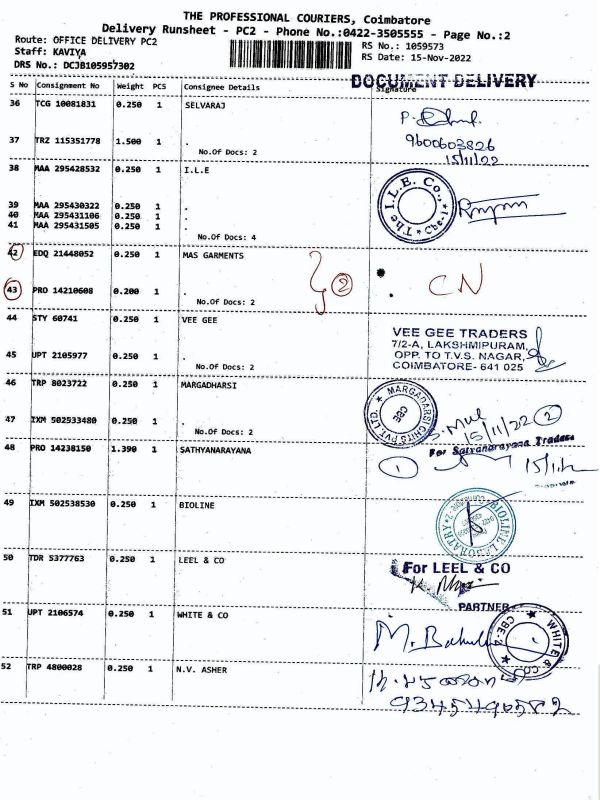 THE PROFESSIONAL COURIERS, Coimbatore
Delivery Runsheet - PC2 - Phone No.:0422-3505555 - Page No.:2
Route: OFFICE DELIVERY PC2
RS No.: 1059573
Staff: KAVIYA
RS Date: 15-Nov-2022
DRS No.: DCJB105957302
DOCUMENT DELIVERY
S No Consignment No Weight PCS Consignee Details Signature
36 TCG 10081831 0.250 1 SELVARAJ
37 TRZ 115351778 1.500 1 .
9600603826
No.Of Docs: 2
15/11/22
38 MAA 295428532 0.250 1 I.L.E
The I.L.E. Co., Cbe-1
39 MAA 295430322 0.250 1 .
40 MAA 295431106 0.250 1 .
41 MAA 295431505 0.250 1 .
No.Of Docs: 4
42 EDQ 21448052 0.250 1 MAS GARMENTS
43 PRO 14210608 0.200 1 .
2 CN
No.Of Docs: 2
44 STY 60741 0.250 1 VEE GEE
VEE GEE TRADERS
7/2-A, LAKSHMIPURAM,
OPP. TO T.V.S. NAGAR,
COIMBATORE- 641 025
45 UPT 2105977 0.250 1 .
No.Of Docs: 2
46 TRP 8023722 0.250 1 MARGADHARSI
MARGADARSI CHITS PVT LTD. CBE
47 IXM 502533480 0.250 1 .
No.Of Docs: 2
15/11/22 2
48 PRO 14238150 1.390 1 SATHYANARAYANA
For Satyanarayana Traders
1
49 IXM 502538530 0.250 1 BIOLINE
BIOLINE LABORATORY
50 TDR 5377763 0.250 1 LEEL & CO
For LEEL & CO
PARTNER
51 UPT 2106574 0.250 1 WHITE & CO
WHITE & CO. CBE-2
52 TRP 4800028 0.250 1 N.V. ASHER